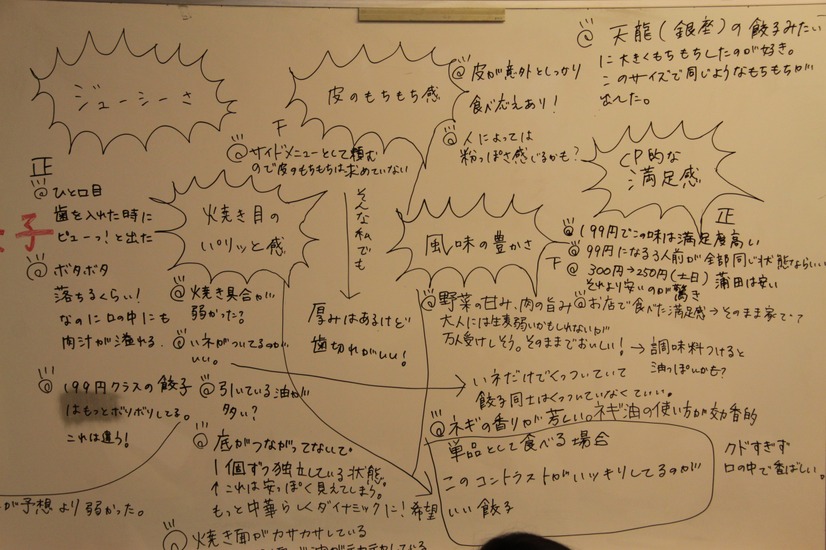 ジューシーさ
正
@ひと口目
歯を入れた時に
ピューっ!と出た
@ボタボタ
落ちるくらい!
なのに口の中にも
肉汁が溢れる.
@199円クラスの餃子
はもっとボソボソしてる。
これは違う!
が予想より弱かった。
子
皮のもちもち感
下
@サイドメニューとして頼む
ので皮のもちもちは求めていない
そんな私でも
厚みはあるけど
歯切れがいい!
@皮が意外としっかり
食べ応えあり!
@人によっては
粉っぽさ感じるかも?
@天龍(銀座)の餃子みたい
に大きくもちもちしたのが好き。
このサイズで同じようなもちもちが
出てた。
焼き目の
パリッと感
@焼き具合が
弱かった?
@いネがついてるのが
いい。
→いネだけでくっついていて
餃子同士はくっついていなくていい。
@引いている油が
多い?
@底がつながってないで
1個ずつ独立している状態。
↑これは安っぽく見えてしまう。
もっと中華らしくダイナミックに!希望
@焼き面がカサカサしている
風味の豊かさ
@野菜の甘み、肉の旨み
大人には生姜弱いかもしれないが
万人受けしそう。そのままでおいしい!→調味料つけると
油っぽいかも?
@ネギの香りが芳しい。ネギ油の使い方が効香的
クドすぎず
口の中で香ばしい。
単品として食べる場合
このコントラストがハッキリしてるのが
いい餃子
CP的な
満足感
正
@199円でこの味は満足度高い
下
@99円になる3人前が全部同じ状態ならいい
@300円→250円(土日)蒲田は安い
それより安いのが驚き
@お店で食べた満足感→そのまま家で?